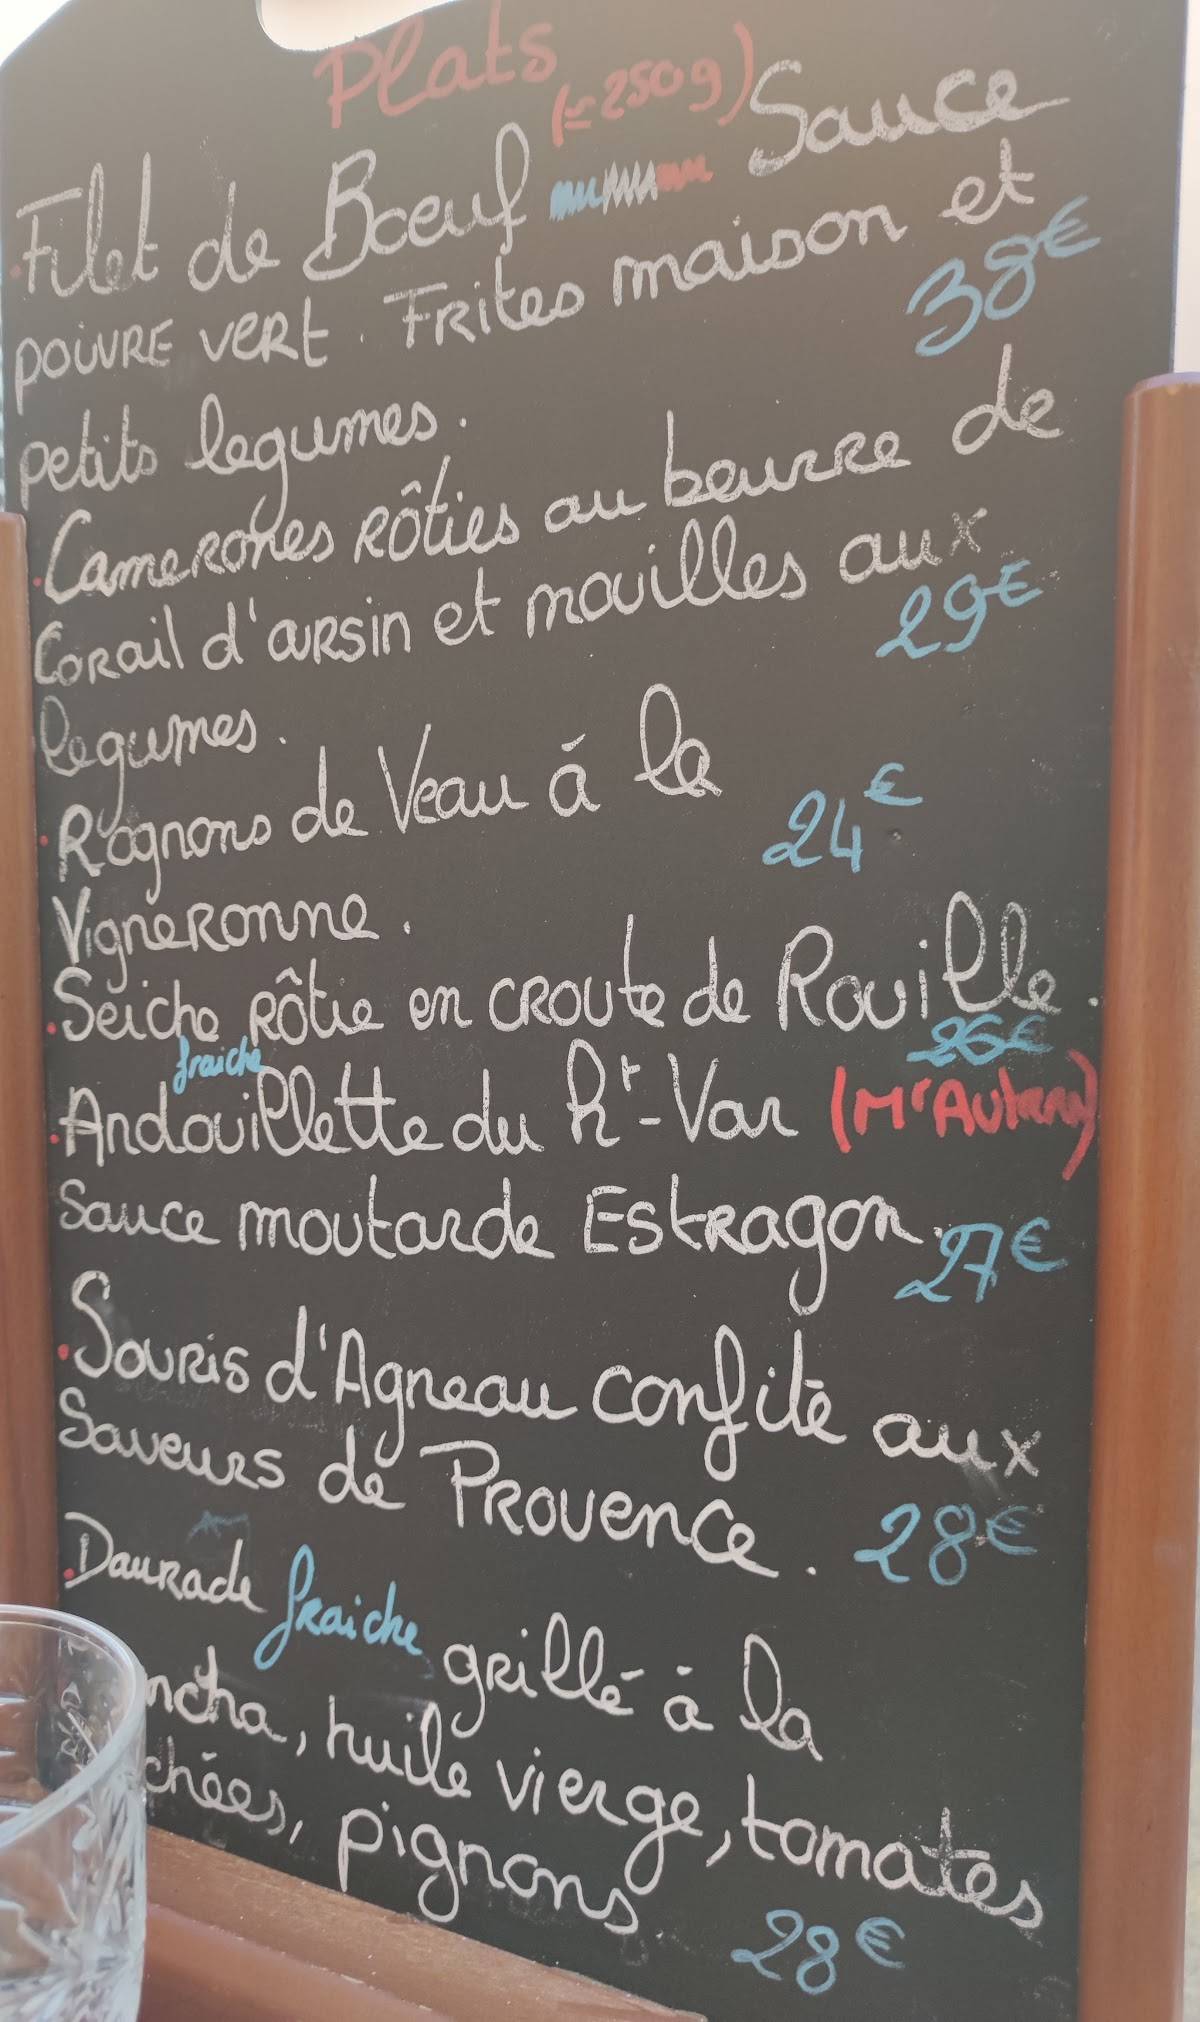 Plats
(≃250g)
Filet de Bœuf Sauce
poivre vert. Frites maison et
38€
petits legumes.
.Camerones Rôties au beurre de
Corail d'oursin et nouilles aux
29€
legumes.
.Rognons de Veau à la
24€
Vigneronne.
.Seiche Rôtie en croute de Rouille.
fraiche
26€
.Andouillette du ht-Var (Mr Autran)
Sauce moutarde Estragon.
27€
.Souris d'Agneau confite aux
Saveurs de Provence.
28€
.Daurade fraiche grillé à la
ncha, huile vierge, tomates
chées, pignons
28€